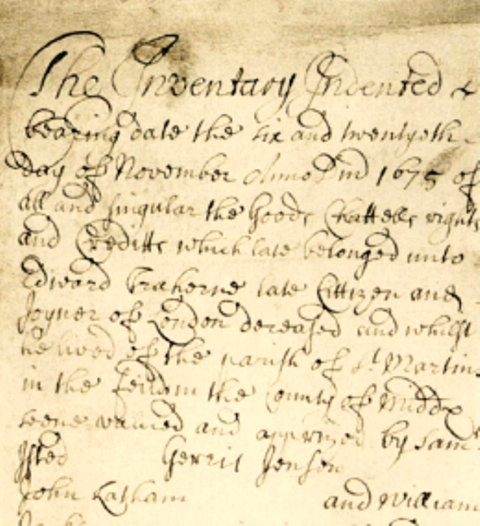 The Inventary Indented &
bearing date the six and twentyeth
day of November Anno Dm 1675 of
all and singular the Goods Chattells rights
and Creditts which late belonged unto
Edward Traherne late Cittizen and
Joyner of London deceased and whilst
he lived of the parish of St Martins
in the feilds in the County of Middx
seene valued and apprized by Sam
Isted Gerrit Jensen
John Latham and William